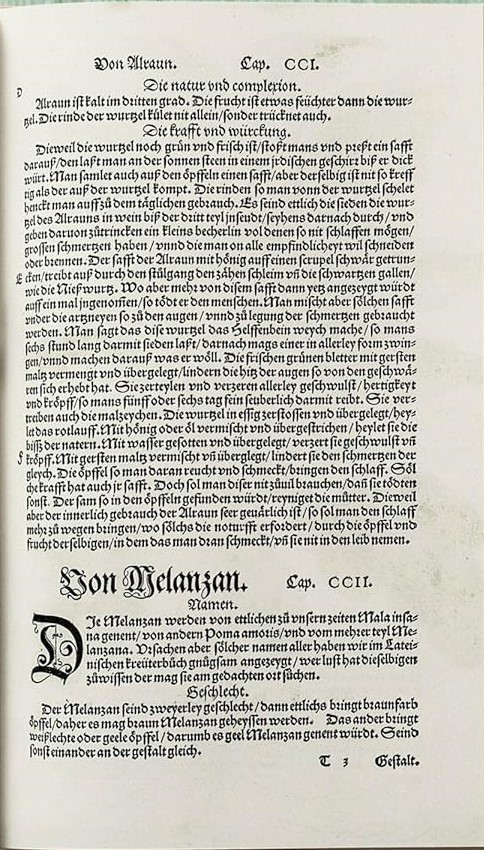 Von Alraun. Cap. CCI.
Die natur vnd complexion.
D
Alraun ist kalt im dritten grad. Die frucht ist etwas feüchter dann die wur-
tzel. Die rinde der wurtzel kület nit allein/sonder trücknet auch.
Die krafft vnd würckung.
Dieweil die wurtzel noch grün vnd frisch ist/stoßt mans vnd preßt ein safft
darauß/den laßt man an der sonnen steen in einem jrdischen geschirr biß er dick
würt. Man samlet auch auß den öpffeln einen safft/aber derselbig ist nit so kreff
tig als der auß der wurtzel kompt. Die rinden so man vonn der wurtzel schelet
henckt man auff zů dem täglichen gebrauch. Es seind ettlich die sieden die wur-
tzel des Alrauns in wein biß der dritt teyl jnseudt/seyhens darnach durch/vnd
geben daruon zůtrincken ein kleins becherlin vol denen so nit schlaffen mögen/
grossen schmertzen haben/vnnd die man on alle empfindlicheyt wil schneiden
oder brennen. Der safft der Alraun mit hönig auff einen scrupel schwär getrun-
E
cken/treibt auß durch den stůlgang den zähen schleim vñ die schwartzen gallen/
wie die Nießwurtz. Wo aber mehr von disem safft dann yetz angezeygt würdt
auff ein mal jngenom̃en/so tödt er den menschen. Man mischt aber sölchen safft
vnder die artzneyen so zů den augen/vnnd zů legung der schmertzen gebraucht
werden. Man sagt das dise wurtzel das Helffenbein weych mache/so mans
sechs stund lang darmit sieden laßt/darnach mags einer in allerley form zwin-
gen/vnnd machen darauß was er wöll. Die frischen grünen bletter mit gersten
maltz vermengt vnd übergelegt/lindern die hitz der augen so von den geschwä-
ren sich erhebt hat. Sie zerteylen vnd verzeren allerley geschwulst/hertigkeyt
vnd kröpff/so mans fünff oder sechs tag fein seüberlich darmit reibt. Sie ver-
treiben auch die malzeychen. Die wurtzel in essig zerstossen vnd übergelegt/hey-
let das rotlauff. Mit hönig oder öl vermischt vnd übergestrichen/heylet sie die
bissz der natern. Mit wasser gesotten vnd übergelegt/verzert sie geschwulst vñ
F
kröpff. Mit gersten maltz vermischt vñ überglegt/lindert sie den schmertzen der
gleych. Die öpffel so man daran reucht vnd schmeckt/bringen den schlaff. Söl
che krafft hat auch jr safft. Doch sol man diser nit zůuil brauchen/dañ sie tödten
sonst. Der sam so in den öpffeln gefunden würdt/reyniget die můtter. Dieweil
aber der innerlich gebrauch der Alraun seer geuärlich ist/so sol man den schlaff
mehr zů wegen bringen/wo sölchs die noturfft erfordert/durch die öpffel vnd
frucht derselbigen/in dem das man dran schmeckt/vñ sie nit in den leib nemen.
Von Melanzan. Cap. CCII.
Namen.
DIe Melanzan werden von ettlichen zů vnsern zeiten Mala insa-
na genent/von andern Poma amoris/vnd vom mehrer teyl Me-
lanzana. Vrsachen aber sölcher namen aller haben wir im Latei-
nischen kreüterbůch gnůgsam angezeygt/wer lust hat dieselbigen
zůwissen der mag sie am gedachten ort sůchen.
Geschlecht.
Der Melanzan seind zweyerley geschlecht/dann ettlichs bringt braunfarb
öpffel/daher es mag braun Melanzan geheyssen werden. Das ander bringt
weißlechte oder geele öpffel/darumb es geel Melanzan genent würdt. Seind
sonst einander an der gestalt gleich.
T 3 Gestalt.